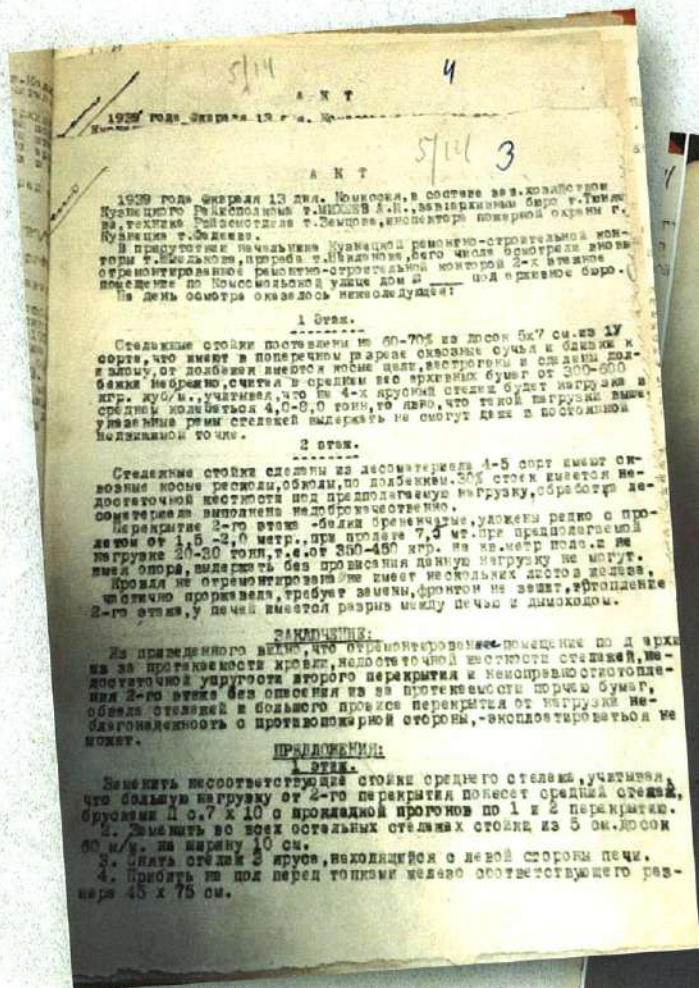 5/14 4
А К Т
1939 года февраля 13 дня.
5/14 3
А К Т
1939 года февраля 13 дня. Комиссия, в составе зав.хозяйством
Кузнецкого Райисполкома т.МИХЕЕВ А.И., зав.архивным бюро т.
ва, техника Райземотдела т.Земцова, инспектора пожарной охраны г.
Кузнецка т.Фадеева.
В присутствии начальника Кузнецкой ремонтно-строительной кон-
торы т.Емелькова, прораба сего числа осмотрели вновь
отремонтированное ремонтно-строительной конторой 2-х этажное
помещение по Комсомольской улице дом № ___ под архивное бюро.
На день осмотра оказалось нижеследующее:
1 Этаж.
Стелажные стойки поставлены на 60-70% из досок 5х7 см.из 1У
сорта,что имеют в поперечном разрезе сквозные сучья и близки к
излому,от долбежки имеются косые щели,застрогены и сделаны дол-
бежки небрежно,считая в среднем вес архивных бумаг от 300-600
кгр. куб/м.,учитывая,что на 4-х ярусный стелаж будет нагрузка в
среднем колебаться 4,0-8,0 тонн,то явно,что такой нагрузки выше-
указанные рамы стелажей выдержать не смогут даже в постоянной
недвижимой точке.
2 этаж.
Стелажные стойки сделаны из лесоматериала 4-5 сорт имеют ск-
возные косые расколы,обколы,по долбежкам.30% стоек имеется не-
достаточной жесткости под предполагаемую нагрузку,обработка ле-
соматериала выполнена недоброкачественно.
Перекрытие 2-го этажа -балки бревенчатые,уложены редко с про-
летом от 1,5 -2,0 метр.,при пролете 7,5 мт.при предполагаемой
нагрузке 20-30 тонн,т.е.от 350-450 кгр. на кв.метр пола.и не
имея опора,выдержать без провисания данную нагрузку не могут.
Кровля не отремонтирована не имеет нескольких листов железа,
частично проржавела,требует замены,фронтон не зашит,отопление
2-го этажа,у печей имеется разрыв между печью и дымоходом.
ЗАКЛЮЧЕНИЕ:
Из приведенного видно,что отремонтированное помещение по д архи
из за протекаемости кровли,недостаточной жесткости стелажей,не-
достаточной упругости второго перекрытия и неисправностиотопле-
ния 2-го этажа без опасения из за протекаемости порчею бумаг,
обвала стелажей и большого провиса перекрытия от нагрузки не-
благонадежность с противопожарной стороны,-эксплоатироваться не
может.
ПРЕДЛОЖЕНИЯ:
1 этаж.
Заменить несоответствующие стойки среднего стелажа,учитывая,
что большую нагрузку от 2-го перекрытия понесет средний стелаж,
брусками Д с.7 х 10 с прокладной прогонов по 1 и 2 перекрытию.
2. Заменить во всех остальных стелажах стойки из 5 см.досок
60 м/м. на ширину 10 см.
3. Снять стелаж 3 яруса,находящийся с левой стороны печи.
4. Прибить на пол перед топками железо соответствующего раз-
мера 45 х 75 см.